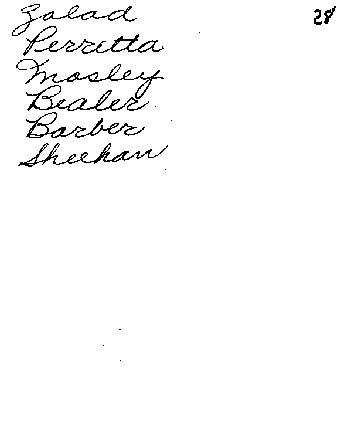 Zalad 28
Perretta
Mosley
Bealer
Barber
Sheehan